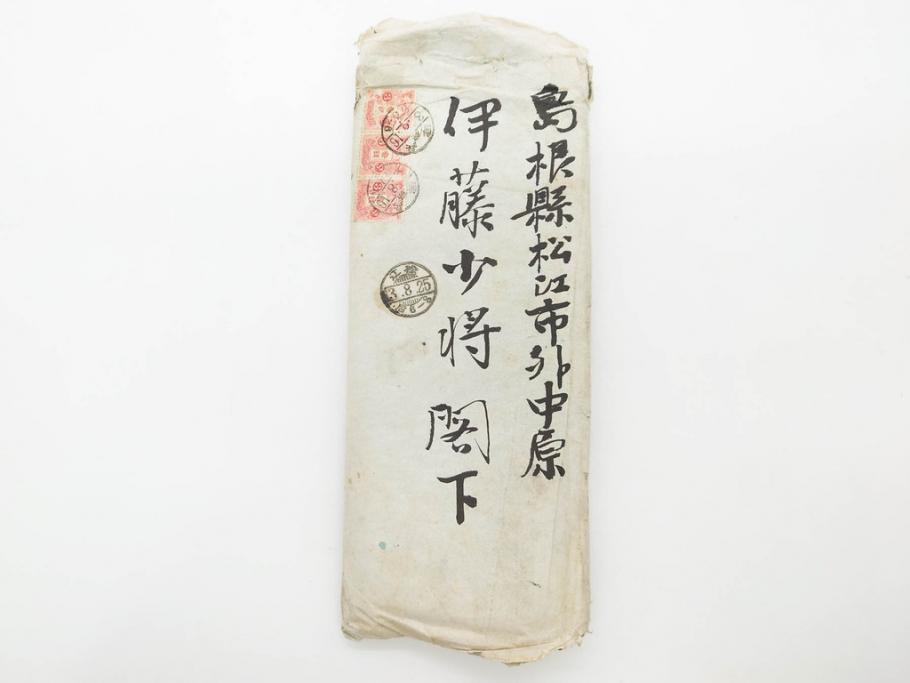 島根縣松江市外中原
伊藤少将 閣下
松江
3.8.25